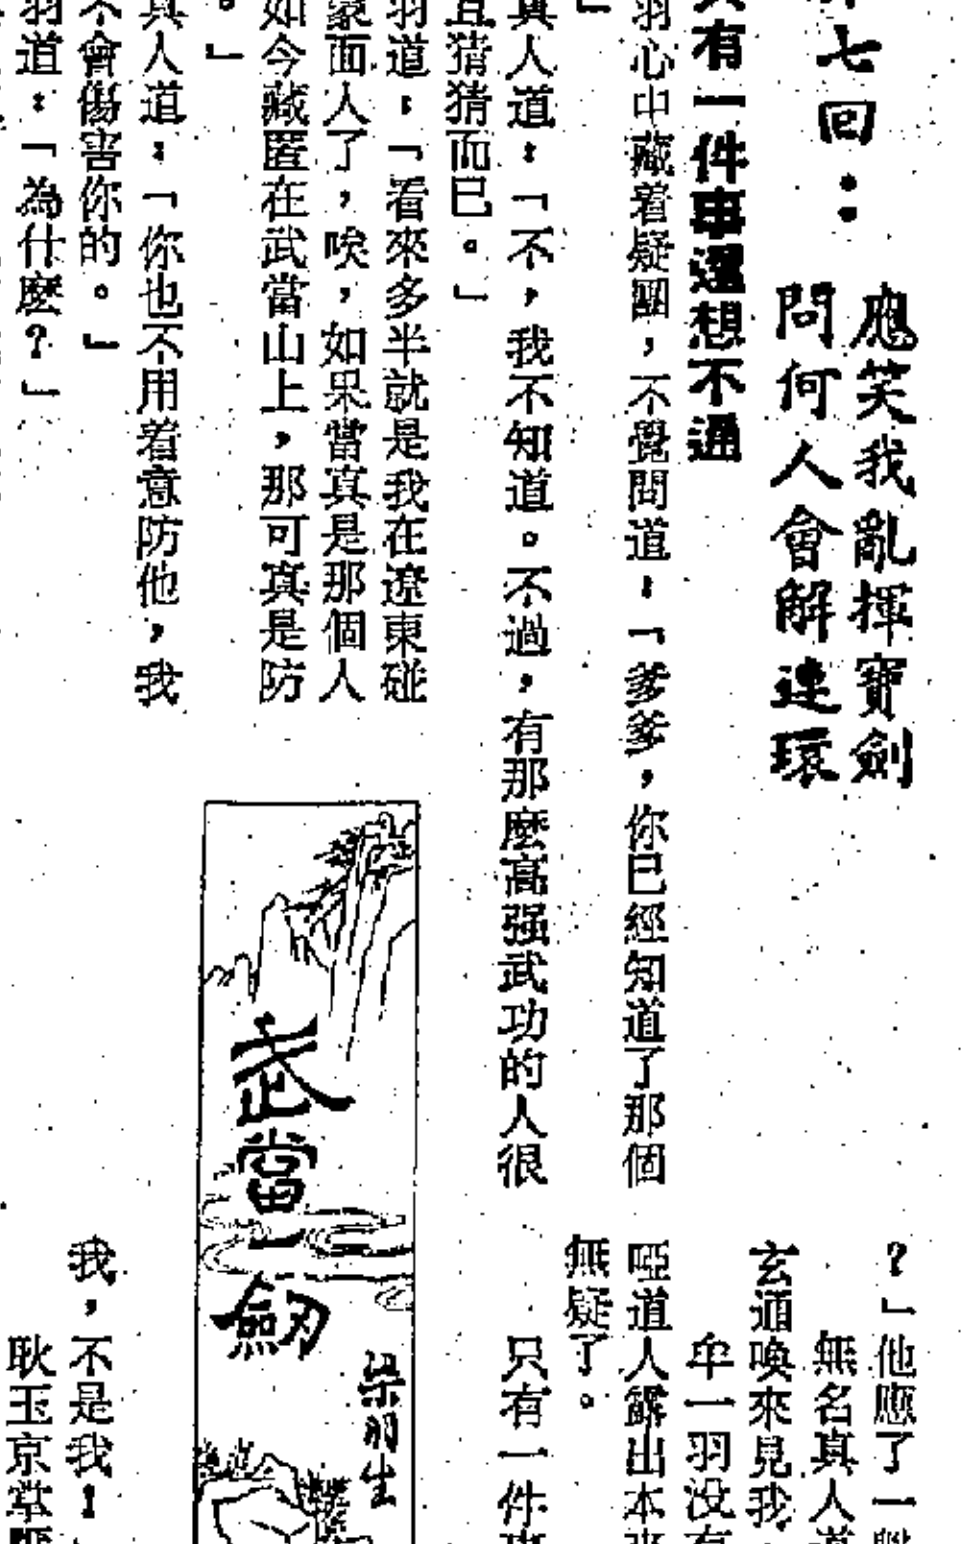 七回：
應笑我亂揮寶劍
問何人會解連環
有一件事還想不通
羽心中藏着疑團，不覺問道：「爹爹，你已經知道了那個
」
真人道：「不，我不知道。不過，有那麼高强武功的人很
且猜猜而已。」
羽道：「看來多半就是我在遼東碰
蒙面人了，唉，如果當真是那個人
如今藏匿在武當山上，那可真是防
。」
真人道：「你也不用着意防他，我
不會傷害你的。」
羽道：「為什麽？」
武當一劍
梁羽生
？」他應了一
無名真人道
玄通喚來見我
牟一羽没有
啞道人解出本來
無疑了。
只有一件事
我，不是我！
耿玉京